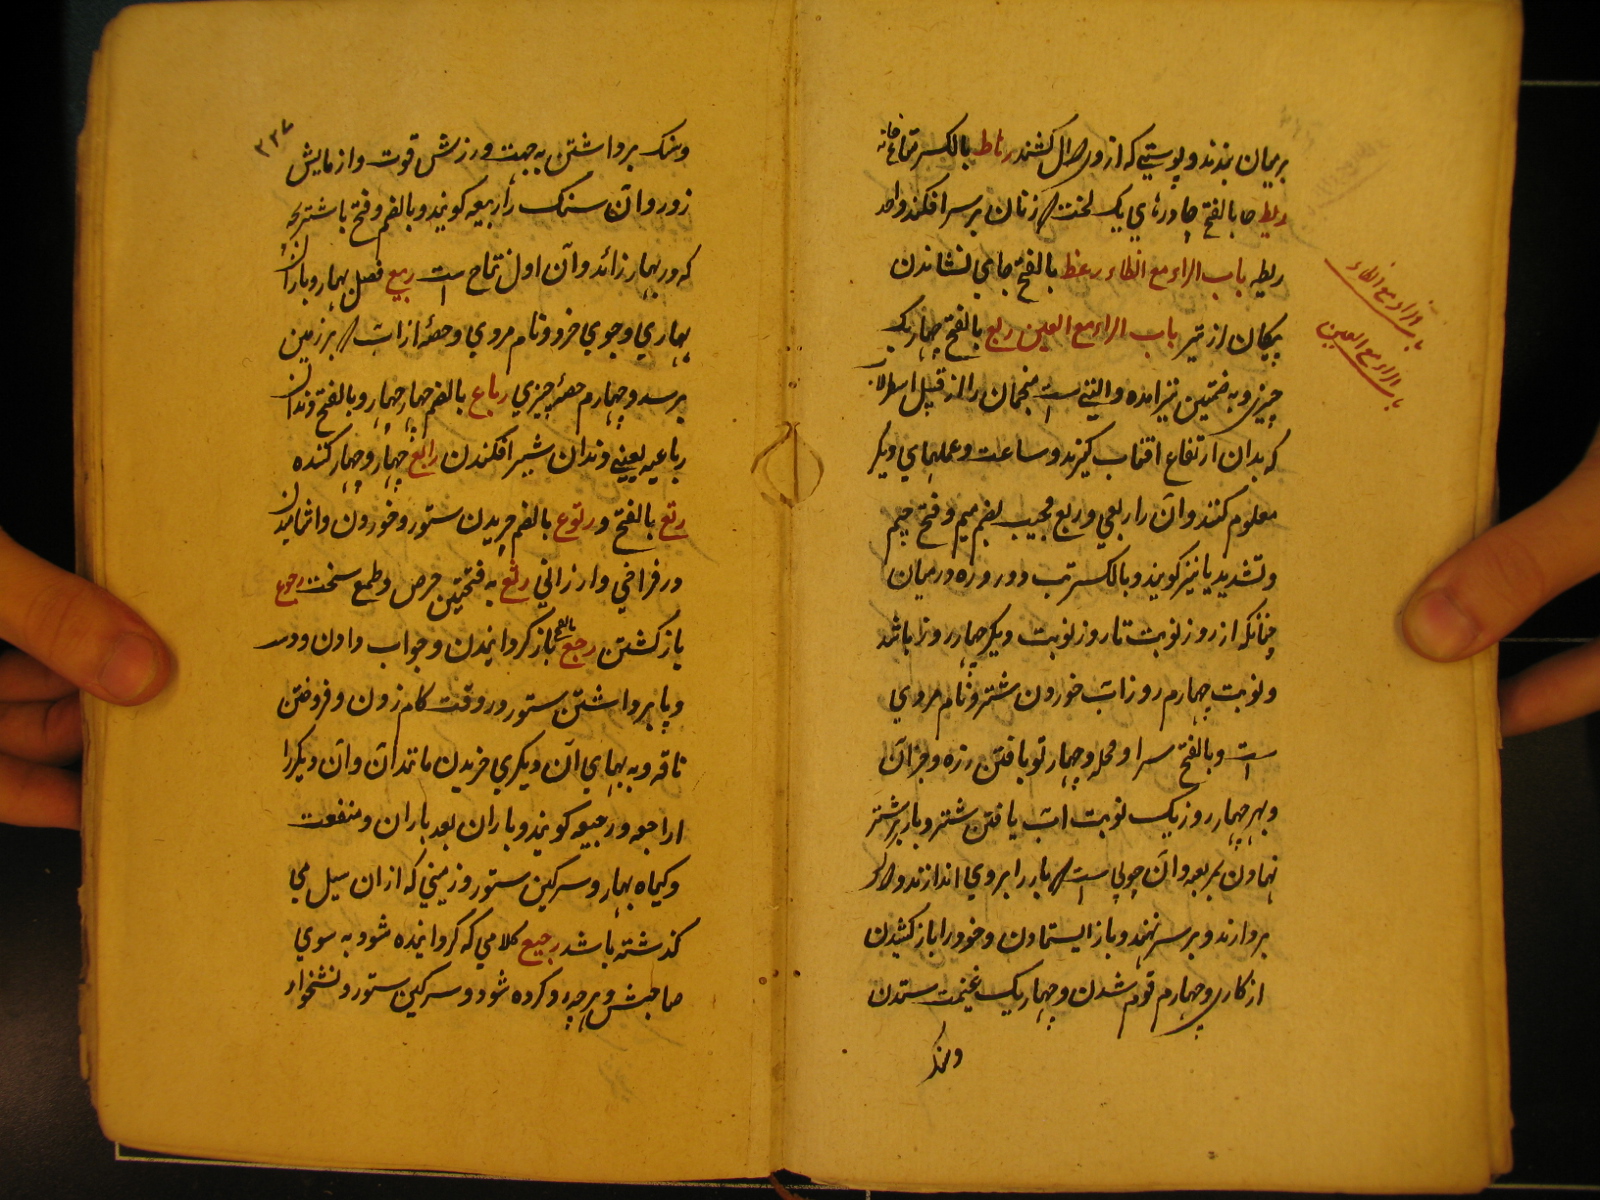 بریمان بندند و پوستی که از ور عسل کشند رباط بالکسر متاع خانه
ریط ها بالفتح چادرهای یک لخت که زنان بر سر افکند واحد
ریطه باب الراء مع الظاء رعظ بالفتح جای نشاندن
پیکان از تیر باب الراء مع العین ربع بالفتح چهار یک
چیزی و به ضمتین نیز امده و التی است منجمان را از قبیل اسطرلاب
که بدان ارتفاع افتاب گیرند و ساعت و عملهای دیگر
معلوم کنند و آن را ربعی و ربع مجیب بضم میم و فتح جیم
و تشدید یا نیز کویند و بالکسر تب دو روزه در میان
چنانکه از روز نوبت تا روز نوبت دیگر چهار روز باشد
و نوبت چهارم روز آب خوردن شتر و نام مردی
است و بالفتح سرا و محله و چهار تو بافتن زره و جز آن
و بهر چهار روز یک نوبت آب یافتن شتر و بار بر شتر
نهادن بمربعه و آن چوبی است که بار را بروی اندازند و
بردارند و بر سر نهند و باز ایستادن و خود را باز کشیدن
از کاری و چهارم قوم شدن و چهار یک غنیمت ستدن
وسنک
باب الراء مع الظاء
باب الراء مع العین
۲۳۷
وسنک برداشتن به جهت ورزش قوت و ازمایش
زور و آن سنک را ربیعه کویند و بالضم و فتح با شتر بچه
که در بهار زائد و آن اول نتاج است ربیع فصل بهار و باران
بهاری و جوی خرد و نام مردی و حصهٔ از آب که بر زمین
برسد و چهارم حصهٔ چیزی رباع بالضم چهار چهار و بالفتح دندان
رباعیه یعنی دندان شیر افکندن رابع چهار و چهار کننده
رتع بالفتح و رتوع بالضم چریدن ستور و خوردن و اشامیدن
در فراخی و ارزانی رثع به فتحتین حرص و طمع سخت رجوع
باز کشتن رجع بالفتح باز کردانیدن و جواب دادن و دست
و پا برداشتن ستور در وقت کام زدن و فروختن
ناقه و به بهای آن دیگری خریدن مانند آن و آن دیگر را
اراجعه و رجیعه کویند و باران بعد باران و منفعت
و کیاه بهار و سرکین ستور و زمینی که از ان سیل می
کذشته باشد رجیع کلامی که کردانیده شود به سوی
صاحبش و هرچه رد کرده شود و سرکین ستور و نشخوار